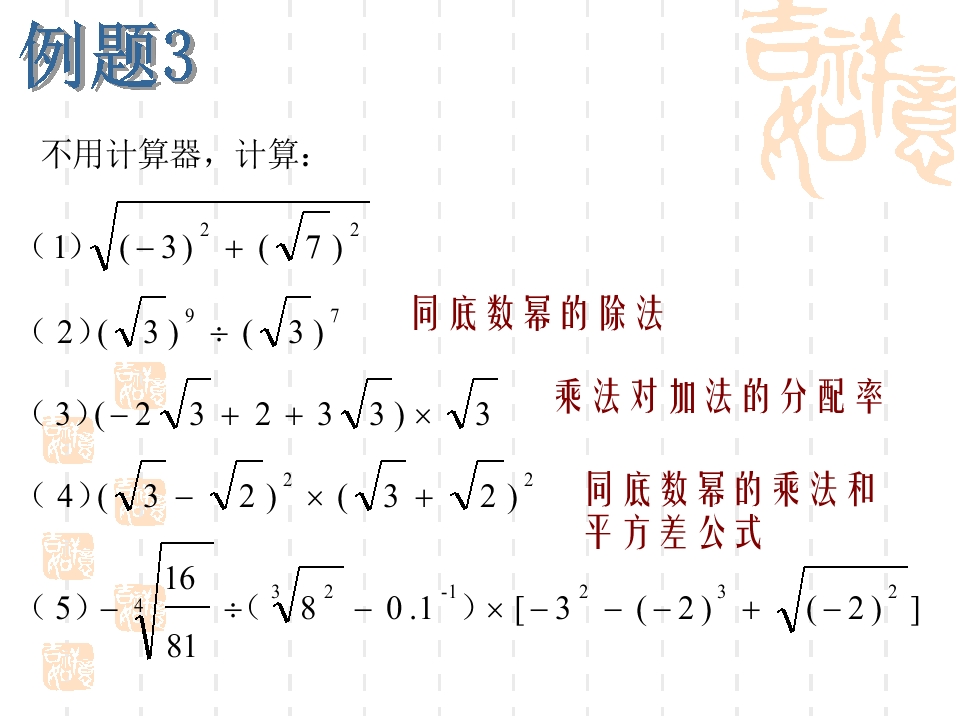 例题3
吉祥如意
不用计算器，计算：
（1）√((−3)²+(√7)²)
（2）(√3)⁹÷(√3)⁷
同底数幂的除法
（3）(−2√3+2+3√3)×√3
乘法对加法的分配率
（4）(√3−√2)²×(√3+√2)²
同底数幂的乘法和
平方差公式
（5）−⁴√(16/81)÷（³√(8²)−0.1⁻¹）×[−3²−(−2)³+√((−2)²)]